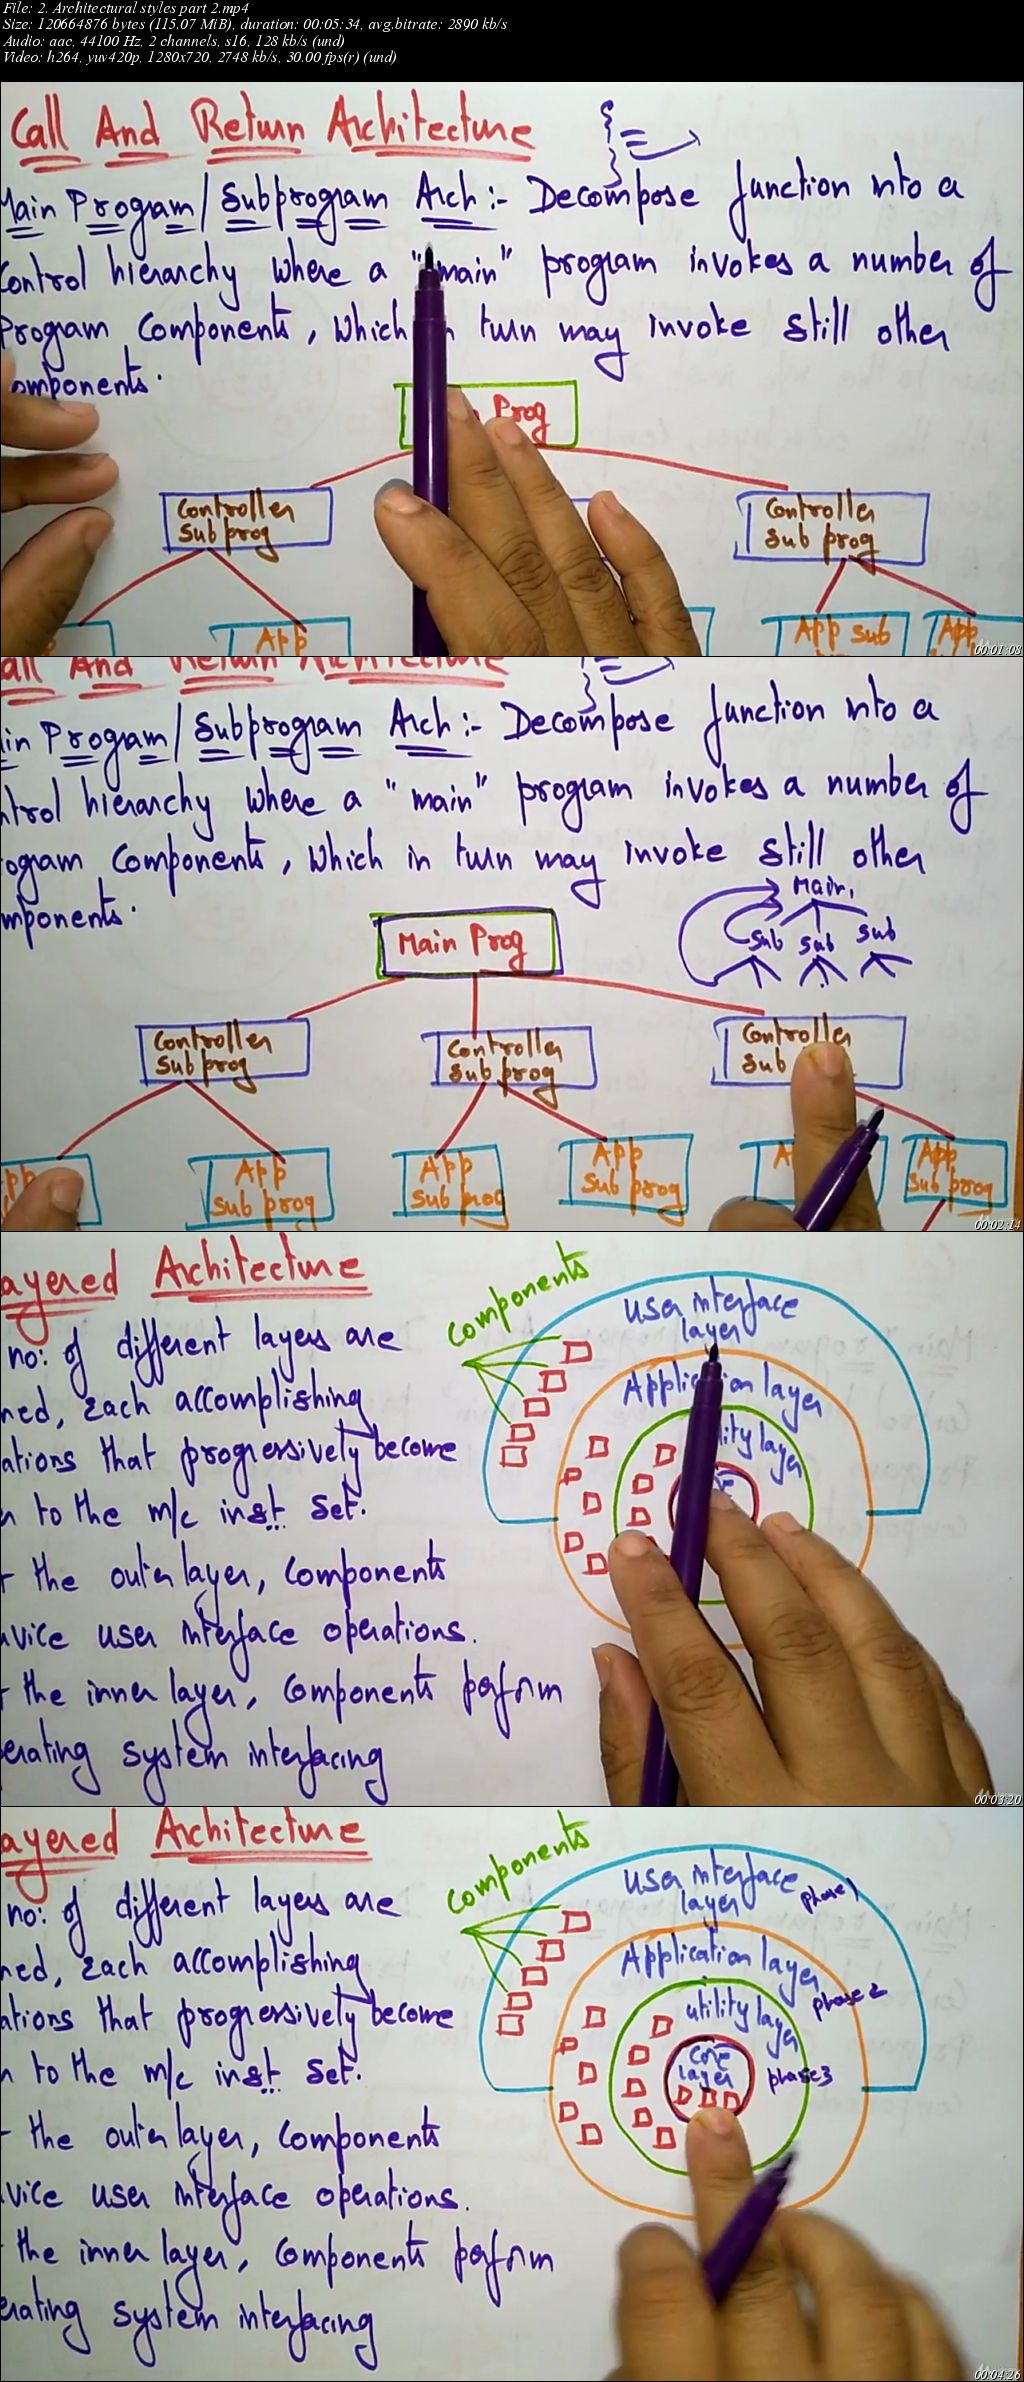 File: 2. Architectural styles part 2.mp4
Size: 120664876 bytes (115.07 MiB), duration: 00:05:34, avg.bitrate: 2890 kb/s
Audio: aac, 44100 Hz, 2 channels, s16, 128 kb/s (und)
Video: h264, yuv420p, 1280x720, 2748 kb/s, 30.00 fps(r) (und)
Call And Return Architecture
Main Program/Subprogram Arch :- Decompose function into a
Control hierarchy where a "main" program invokes a number of
Program Components, which turn may invoke still other
omponents.
Prog
Controller
Sub prog
Controller
Sub prog
App
App sub
App
00:01:08
all And Return Architecture
in Program/Subprogram Arch :- Decompose function into a
ntrol hierarchy where a "main" program invokes a number of
ogram Components, which in turn may invoke still other
mponents.
Main,
Sub Sub Sub
Main Prog
Controller
Sub prog
Controller
Sub prog
Controller
Sub
pp
App
Sub prog
App
Sub prog
App
Sub prog
A
App
Sub prog
00:02:14
ayered Architecture
Components
User interface
layer
no: of different layers are
Application layer
ned, Each accomplishing
lity layer
ations that progressively become
to the m/c inst set.
the outer layer, Components
vice user interface operations.
the inner layer, Components perform
erating system interfacing
00:03:20
ayered Architecture
Components
User interface
layer
phase1
no: of different layers are
Application layer
phase2
ned, Each accomplishing
utility layer
ations that progressively become
Core
layer
phase3
to the m/c inst set.
the outer layer, Components
vice user interface operations.
the inner layer, Components perform
erating system interfacing
00:04:26